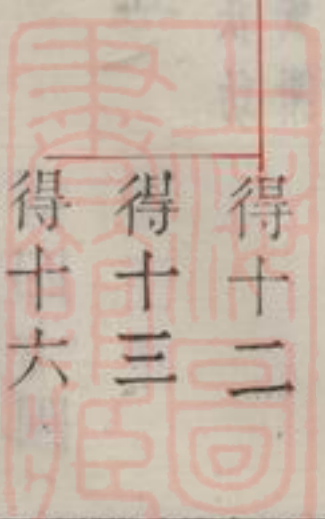 得十二
得十三
得十六